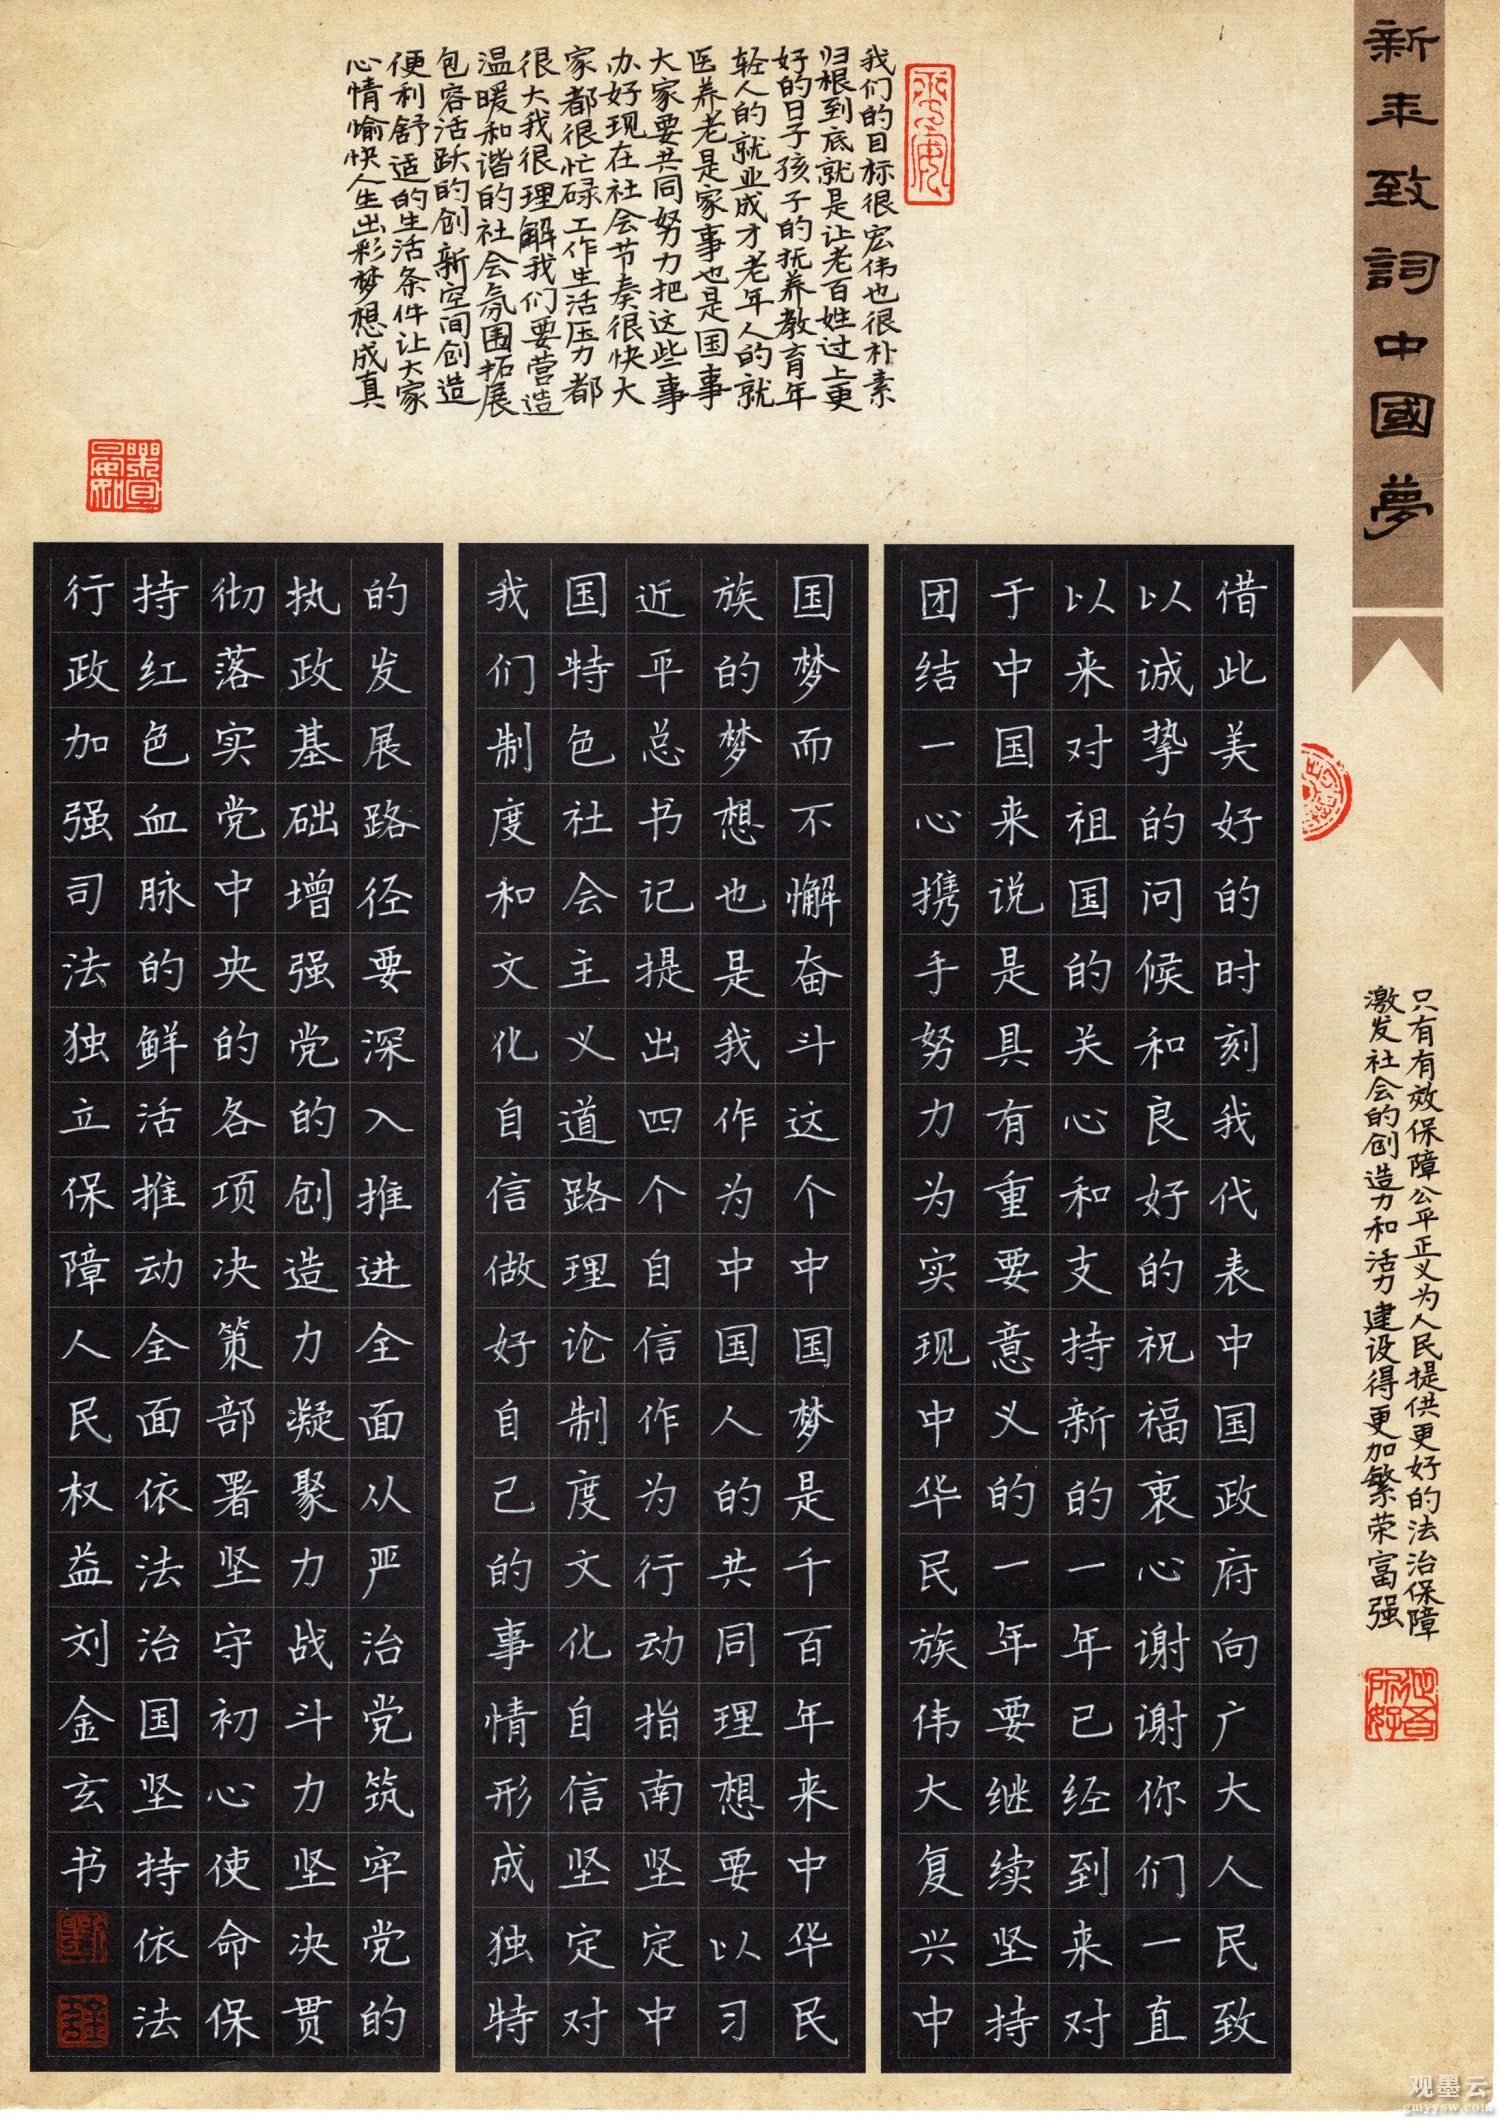 新年致詞中國夢
我们的目标很宏伟也很朴素
归根到底就是让老百姓过上更
好的日子孩子的抚养教育年
轻人的就业成才老年人的就
医养老是家事也是国事
大家要共同努力把这些事
办好现在社会节奏很快大
家都很忙碌工作生活压力都
很大我很理解我们要营造
温暖和谐的社会氛围拓展
包容活跃的创新空间创造
便利舒适的生活条件让大家
心情愉快人生出彩梦想成真
只有有效保障公平正义为人民提供更好的法治保障
激发社会的创造力和活力建设得更加繁荣富强
借此美好的时刻我代表中国政府向广大人民致
以诚挚的问候和良好的祝福衷心谢谢你们一直
以来对祖国的关心和支持新的一年已经到来对
于中国来说是具有重要意义的一年要继续坚持
团结一心携手努力为实现中华民族伟大复兴中
国梦而不懈奋斗这个中国梦是千百年来中华民
族的梦想也是我作为中国人的共同理想要以习
近平总书记提出四个自信作为行动指南坚定中
国特色社会主义道路理论制度文化自信坚定对
我们制度和文化自信做好自己的事情形成独特
的发展路径要深入推进全面从严治党筑牢党的
执政基础增强党的创造力凝聚力战斗力坚决贯
彻落实党中央的各项决策部署坚守初心使命保
持红色血脉的鲜活推动全面依法治国坚持依法
行政加强司法独立保障人民权益刘金玄书
观墨云
gmyysw.com